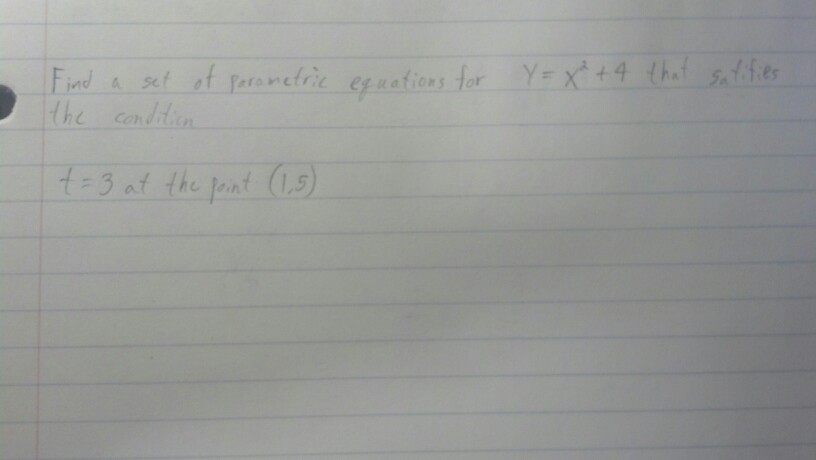 Find a set of parametric equations for Y = x² + 4 that satifies
the condition
t = 3 at the point (1,5)